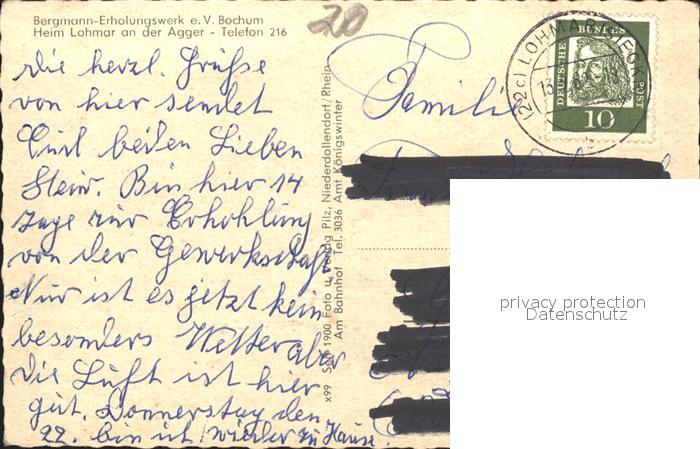 Bergmann-Erholungswerk e. V. Bochum
Heim Lohmar an der Agger - Telefon 216
20
die herzl. Grüße
von hier sendet
Euch beilen Lieben
Stein. Bin hier 14
Tage zur Erhohlung
von der Gewerkschaft
Nur ist es jetzt kein
besonders Wetter aber
die Luft ist hier
gut. Donnerstag den
22. bin ich wieder zu Hause.
x99 1900 Foto u. Verlag Pilz, Niederdollendorf/Rhein
Am Bahnhof Tel. 3036 Amt Königswinter
Familie
(22c) LOHMAR
DEUTSCHE BUNDESPOST
10
privacy protection
Datenschutz